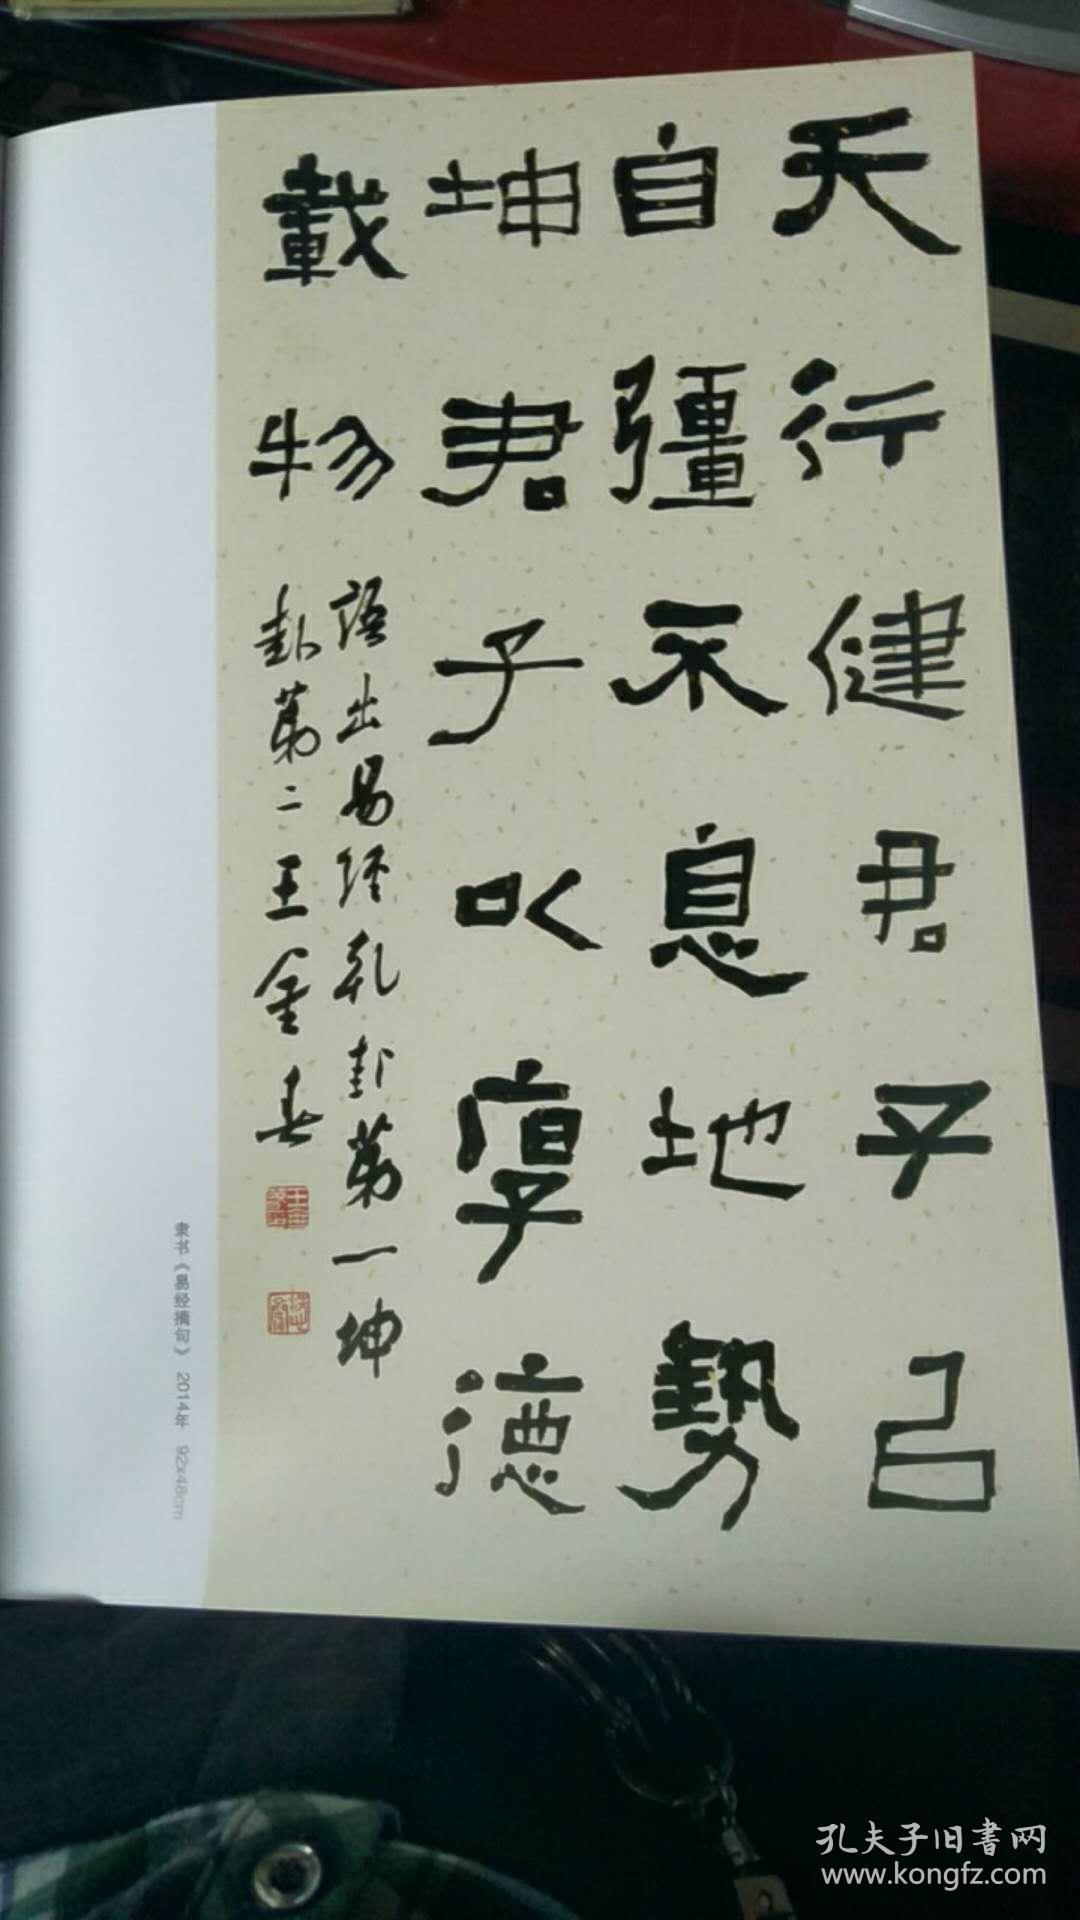 天行健君子㠯
自彊不息地勢
坤君子以厚德
載物
語出易經乾卦第一坤
卦第二王金春
隶书《易经摘句》 2014年 92x48cm
孔夫子旧書网
www.kongfz.com